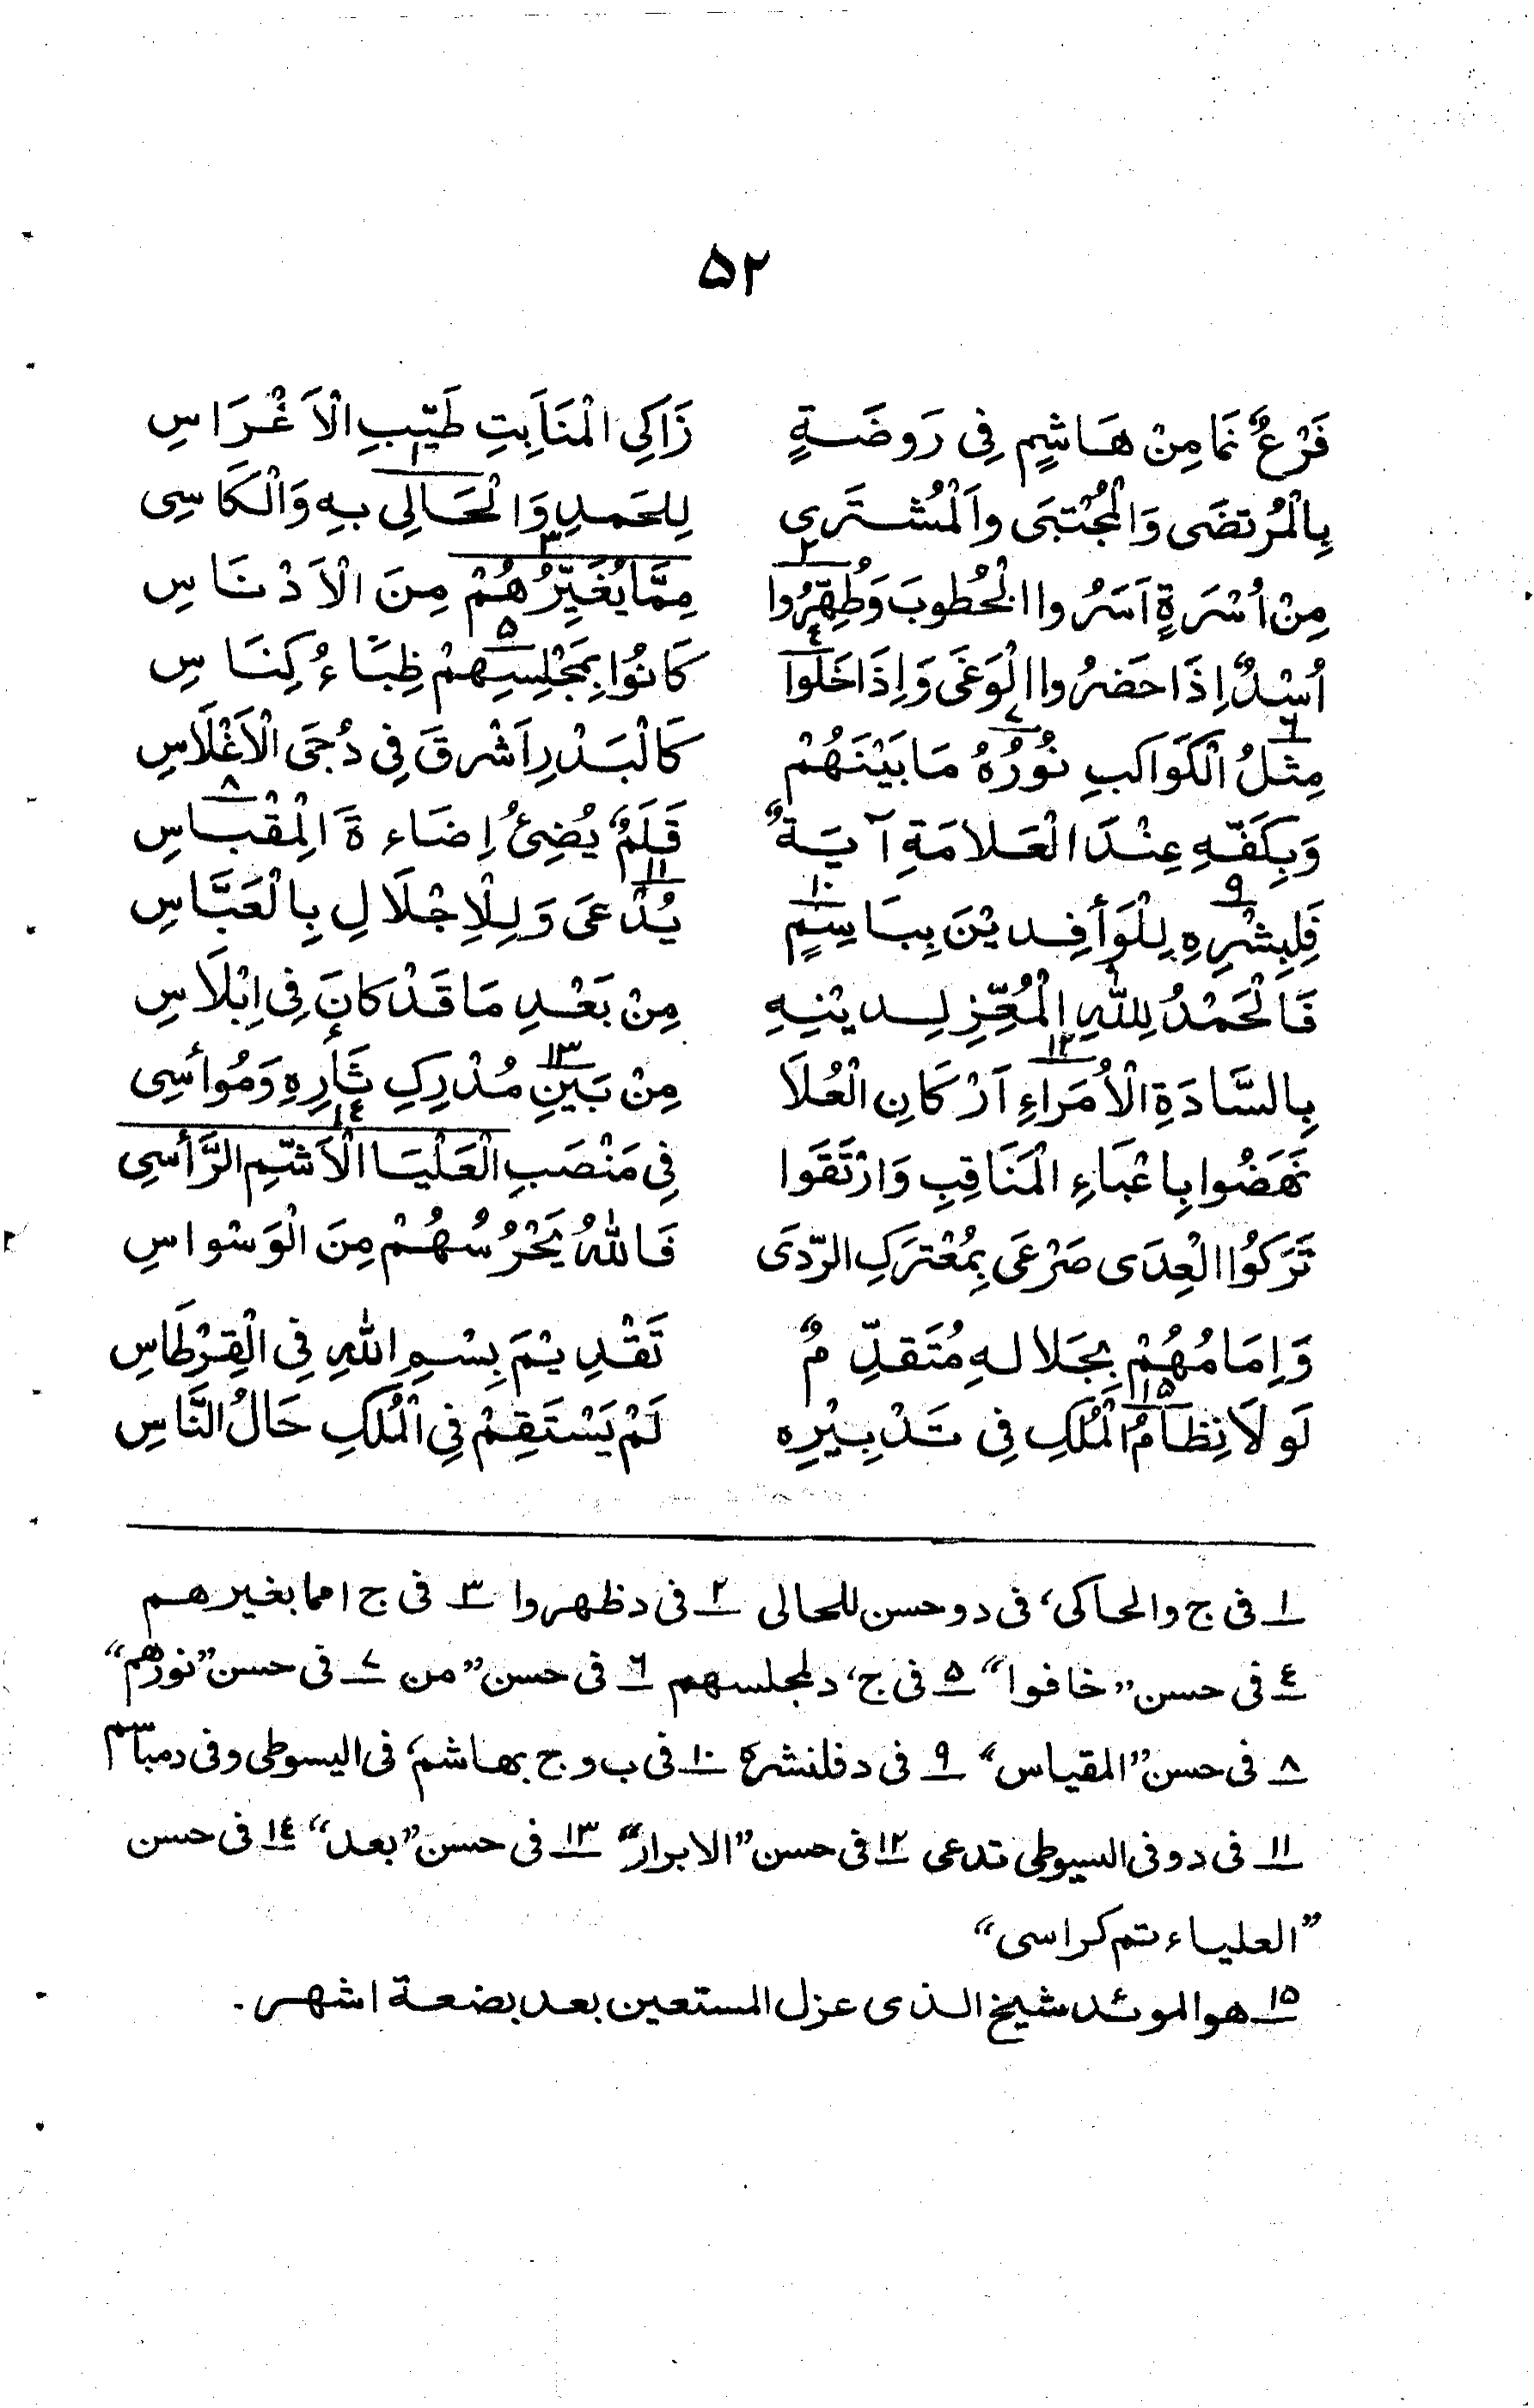 ۵۲
فَرْعٌ نَمَا مِنْ هَاشِمٍ فِى رَوضَةٍ زَاكِي الْمَنَابِتِ طَيّبِ الْاَغْرَاسِ
بِالْمُرتضَى وَالْمُجْتبَى واَلْمُشترَى لِلحَمدِ وَالْحَالِي بهِ وَالْكَاسِى ١
مِنْ اُسْرَةٍ اَسَرُوا الْخُطوبَ وَطُهِّرُوا ٢ مِمَّا يُغَيِّرُهُمْ ٣ مِنَ الْاَدْنَاسِ
اُسْدٌ اِذَا حَضرُوا الْوَغَى وَاِذَا خَلَوا ٤ كَانُوا بِمَجْلِسِهِمْ ٥ ظِبَاءُ كِنَاسِ
مِثلُ ٦ الْكَوَاكبِ نُورُهُ ٧ مَا بَيْنَهُمْ كَالْبَدْرِ اَشْرقَ فِي دُجَى الْاَغْلَاسِ
وَبِكَفّهِ عِنْدَ الْعَلامَةِ آيَةٌ قَلَمٌ يُضِئُ اِضَاءةَ الْمِقْبَاسِ ٨
فَلِبِشْرِهِ ٩ لِلْوَأفِدِيْنَ بِبَاسِمٍ ١٠ يُدْعَى ١١ وَلِلْاِجْلَالِ بِالْعَبَّاسِ
فَالْحَمْدُ لِلّٰهِ الْمُعِّزِ لِدِيْنِهِ مِنْ بَعْدِ مَا قَدْ كَانَ فِى اِبْلَاسِ
بِالسَّادَةِ الْاُمَرَاءِ ١٢ اَرْكَانِ الْعُلَا مِنْ بَينِ ١٣ مُدْرِكِ ثَأرِهِ وَمُوأسِى
نَهَضُوا بِاعْبَاءِ الْمَنَاقِبِ وَارْتَقَوا فِي مَنْصَبِ الْعَلْيَا الْاَشّمِ الرَّأسِى ١٤
تَرَكُوا الْعِدَى صَرْعَى بِمُعْترَكِ الرّدَى فَاللّٰهُ يَحْرُسُهُمْ مِنَ الْوَسْواسِ
وَاِمَامُهُمْ بِجَلالهِ مُتَقدِّمٌ تَقْدِيْمَ بِسْمِ اللّٰهِ فِي الْقِرْطَاسِ
لَولَا نِظَامُ الْمُلكِ ١٥ فِي تَدْبِيْرِه لَمْ يَسْتَقِمْ فِي الْمُلكِ حَالُ النَّاسِ
١ فى ج والحاكى، فى د وحسن للحالى ٢ فى د ظهروا ٣ فى ج امما بغيرهم
٤ فى حسن ”خافوا“ ٥ فى ج، د لمجلسهم ٦ فى حسن ”من ٧ فى حسن ”نورهم“
٨ فى حسن ”المقياس“ ٩ فى د فلنشره ١٠ فى ب وج بهاشم، فى اليسوطى وفى د مباسم
١١ فى د وفى السيوطى تدعى ١٢ فى حسن ”الابرار“ ١٣ فى حسن ”بعد“ ١٤ فى حسن
”العلياء تم كراسى“
١٥ هو الموئد شيخ الذى عزل المستعين بعد بضعة اشهر.